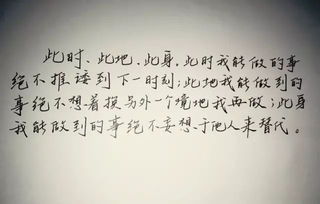 此时、此地、此身,此时我能做的事
绝不推诿到下一时刻;此地我能做到的
事绝不想着换另外一个境地我再做;此身
我能做到的事绝不妄想于他人来替代。